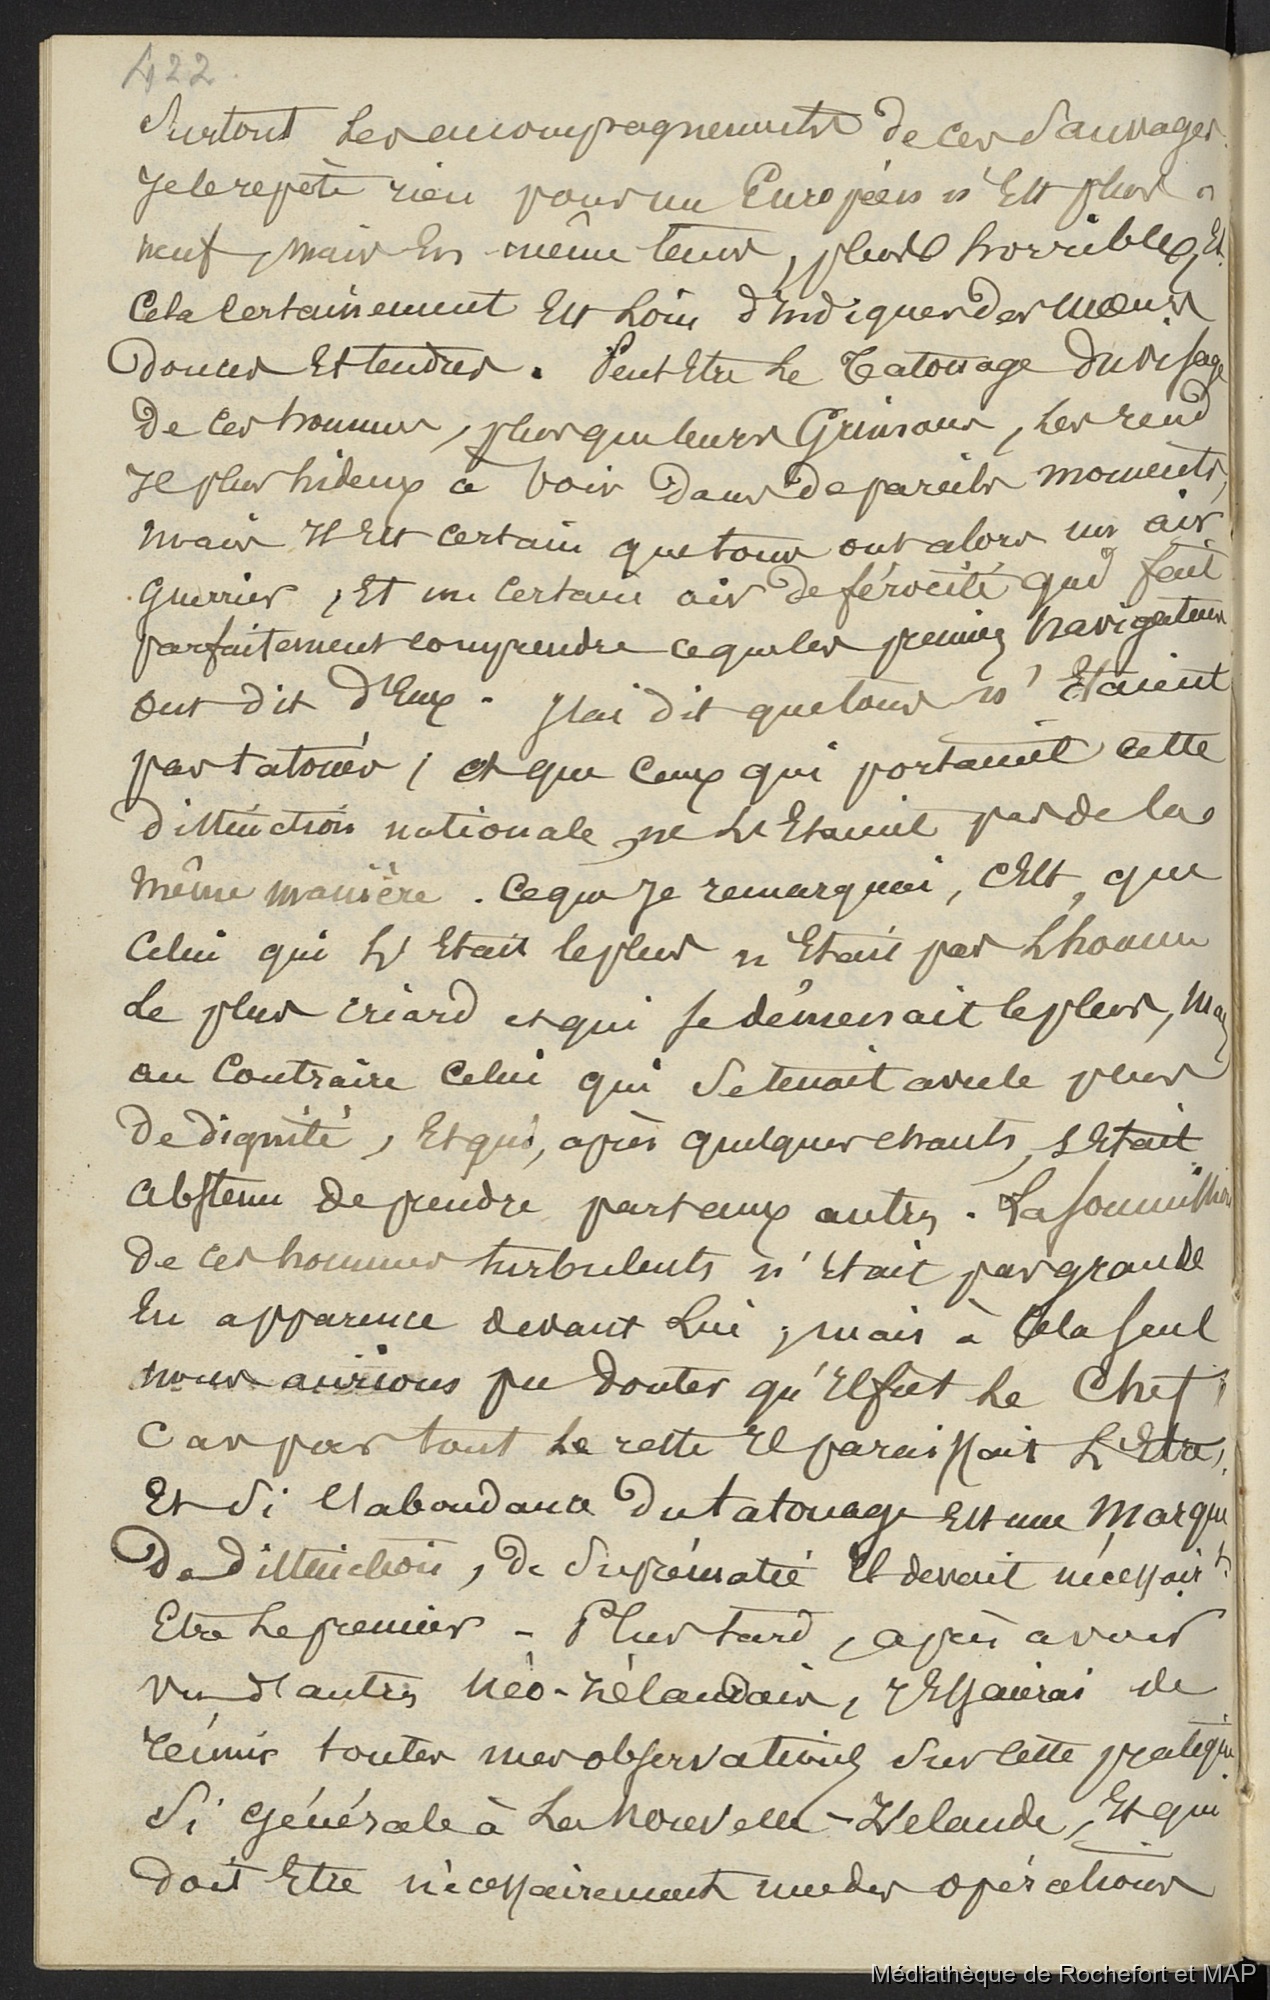 422
Surtout les accompagnements de ces Sauvages.
Je le repète rien pour un Européen n'Est plus
neuf, mais En même tems, plus horrible, Et
Cela Certainement Est Loin d'Indiquer des mœurs
douces Et tendres. Peut Etre Le Tatouage du visage
De Ces hommes, plus que leurs Grimaces, Les rend
Il plus hideux à Voir Dans de pareils moments,
Mais Il Est Certain que tous ont alors un air
Guerrier, Et un Certain air de férocité qui fait
parfaitement comprendre ce que les premiers Navigateurs
Ont dit d'Eux. J'ai dit que tous n'Etaient
pas tatoués, et que Ceux qui portaient cette
distinction nationale, ne L'Etaient pas de la
même manière. Ce que Je remarquai, C'Est, que
Celui qui L'Etait le plus n'Etait pas L'homme
Le plus criard et qui se démenait le plus, Mais
au Contraire Celui qui Se tenait avec le plus
De dignité, Et qui, après quelques chants, s'Etait
abstenu De prendre part aux autres. La Soumission
de ces hommes turbulents n'était pas grande
En apparence devant Lui, mais à Cela seul
nous aurions pu douter qu'Il fut Le Chef
Car par tout Le reste Il paraissait L'Etre,
Et Si l'abondance Du tatouage Est une Marque
De distinction, de Suprématie Il devait nécessairt
Etre Le premier - Plus tard, après avoir
vu d'autres Néo-Zélandais, J'Essaierai de
réunir toutes mes observations Sur Cette pratique
Si générale à La Nouvelle-Zélande, Et qui
doit Etre nécessairement une des opérations
Médiathèque de Rochefort et MAP